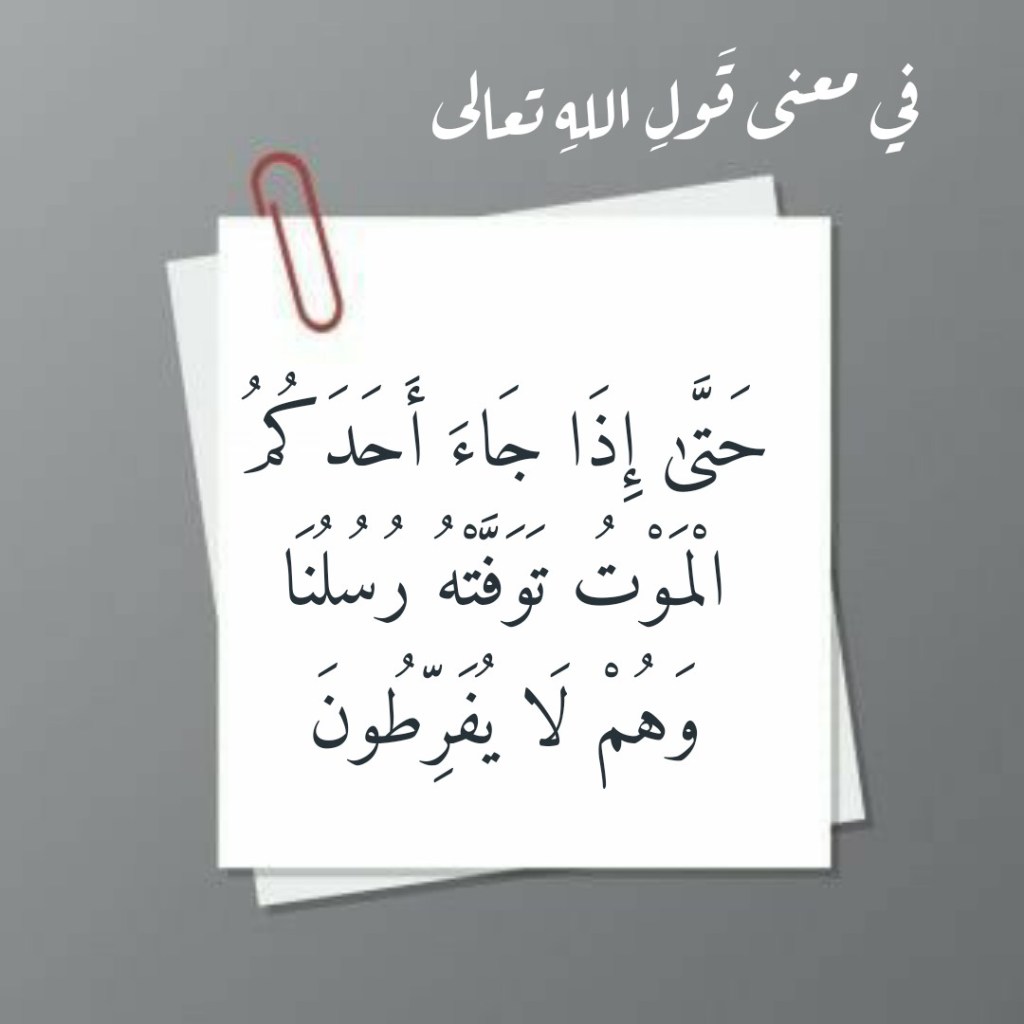 في معنى قَولِ اللهِ تعالى
حَتَّىٰ إِذَا جَاءَ أَحَدَكُمُ
الْمَوْتُ تَوَفَّتْهُ رُسُلُنَا
وَهُمْ لَا يُفَرِّطُونَ